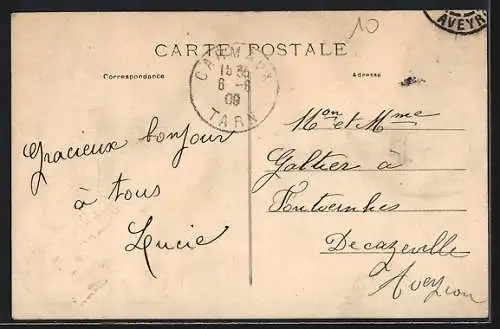 10
AVEYR
CARTE POSTALE
Correspondance
Adresse
CARMAUX
15 35
6 - 6
09
TARN
Mon et Mme
Galtier à
Fontvernhes
Decazeville
Aveyron
Gracieux bonjour
à tous
Lucie